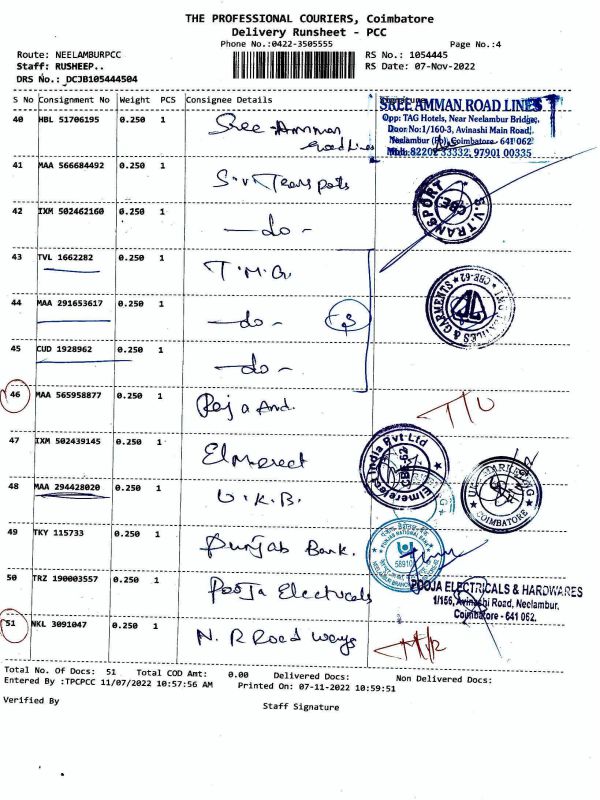 THE PROFESSIONAL COURIERS, Coimbatore
Delivery Runsheet - PCC
Phone No.:0422-3505555 Page No.:4
Route: NEELAMBURPCC RS No.: 1054445
Staff: RUSHEEP.. RS Date: 07-Nov-2022
DRS No.: DCJB105444504
S No Consignment No Weight PCS Consignee Details
40 HBL 51706195 0.250 1 Sree Amman
Road Lines
SREE AMMAN ROAD LINES
Opp: TAG Hotels, Near Neelambur Bridge,
Door No:1/160-3, Avinashi Main Road,
Neelambur (Po), Coimbatore - 641 062
Mob: 82202 33332, 97901 00335
41 MAA 566684492 0.250 1 S.V Transpots
S.V. TRANSPORT
42 IXM 502462160 0.250 1 -do-
43 TVL 1662282 0.250 1 T.M.G.
& GARMENTS CBE-62
44 MAA 291653617 0.250 1 -do- 3
45 CUD 1928962 0.250 1 -do-
46 MAA 565958877 0.250 1 Roja And.
47 IXM 502439145 0.250 1 Elmerect
Elmereject India Pvt Ltd
CBE-62
48 MAA 294428020 0.250 1 U.K.B.
COIMBATORE
49 TKY 115733 0.250 1 Punjab Bank.
PUNJAB NATIONAL BANK
50 TRZ 190003557 0.250 1 Pooja Electricals
POOJA ELECTRICALS & HARDWARES
1/156, Avinashi Road, Neelambur,
Coimbatore - 641 062.
51 NKL 3091047 0.250 1 N.R Road ways
Total No. Of Docs: 51 Total COD Amt: 0.00 Delivered Docs: Non Delivered Docs:
Entered By :TPCPCC 11/07/2022 10:57:56 AM Printed On: 07-11-2022 10:59:51
Verified By Staff Signature